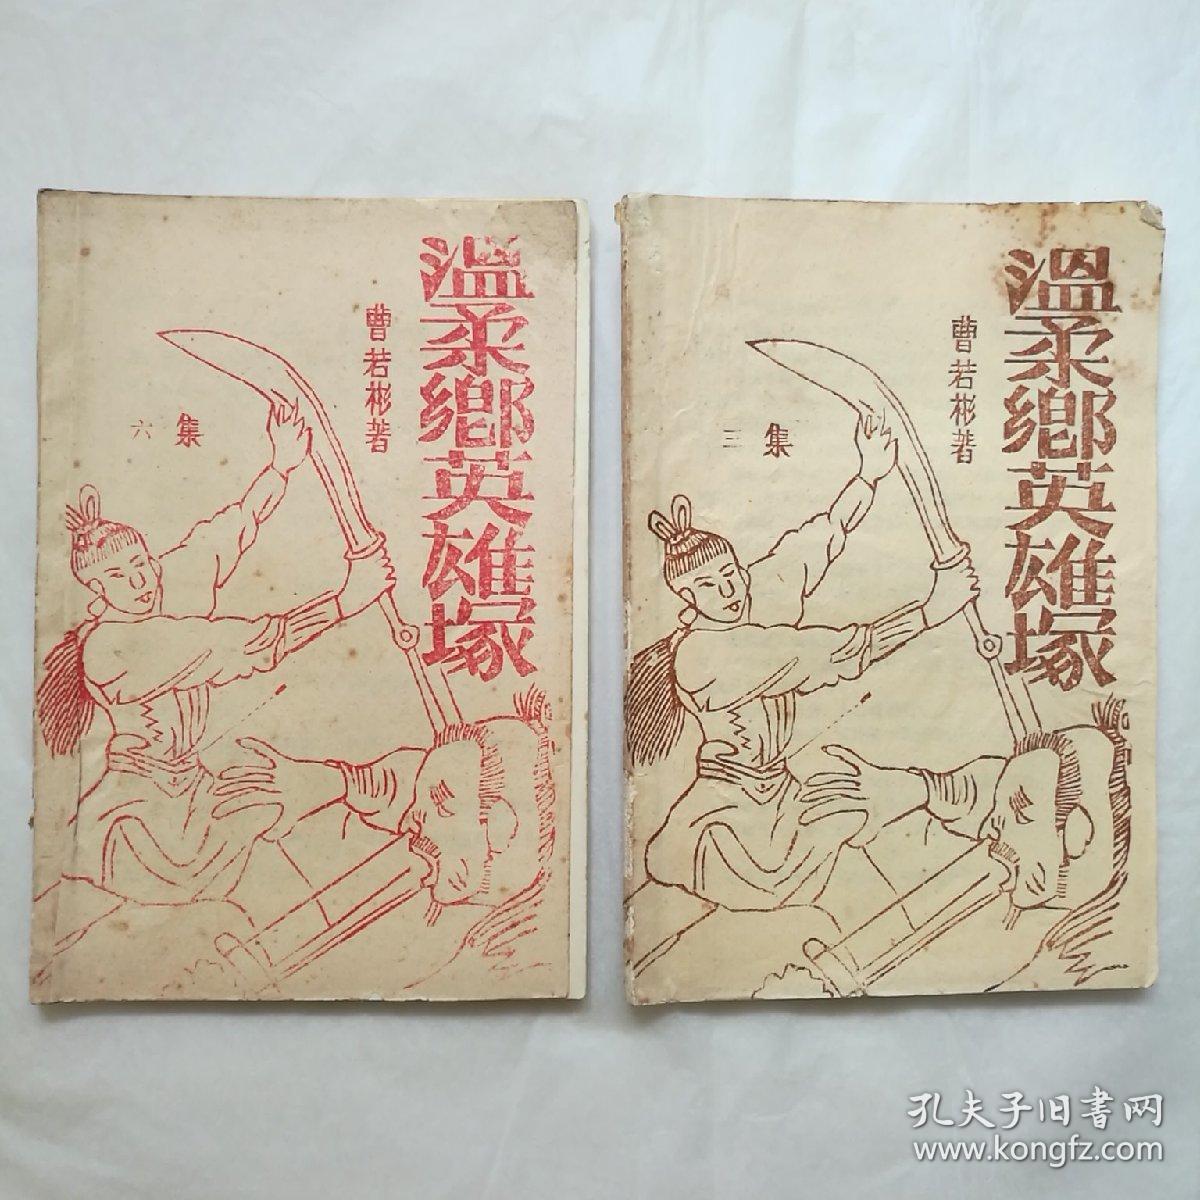 溫柔鄉英雄塚
曹若彬著
六集
溫柔鄉英雄塚
曹若彬著
三集
孔夫子旧書网
www.kongfz.com